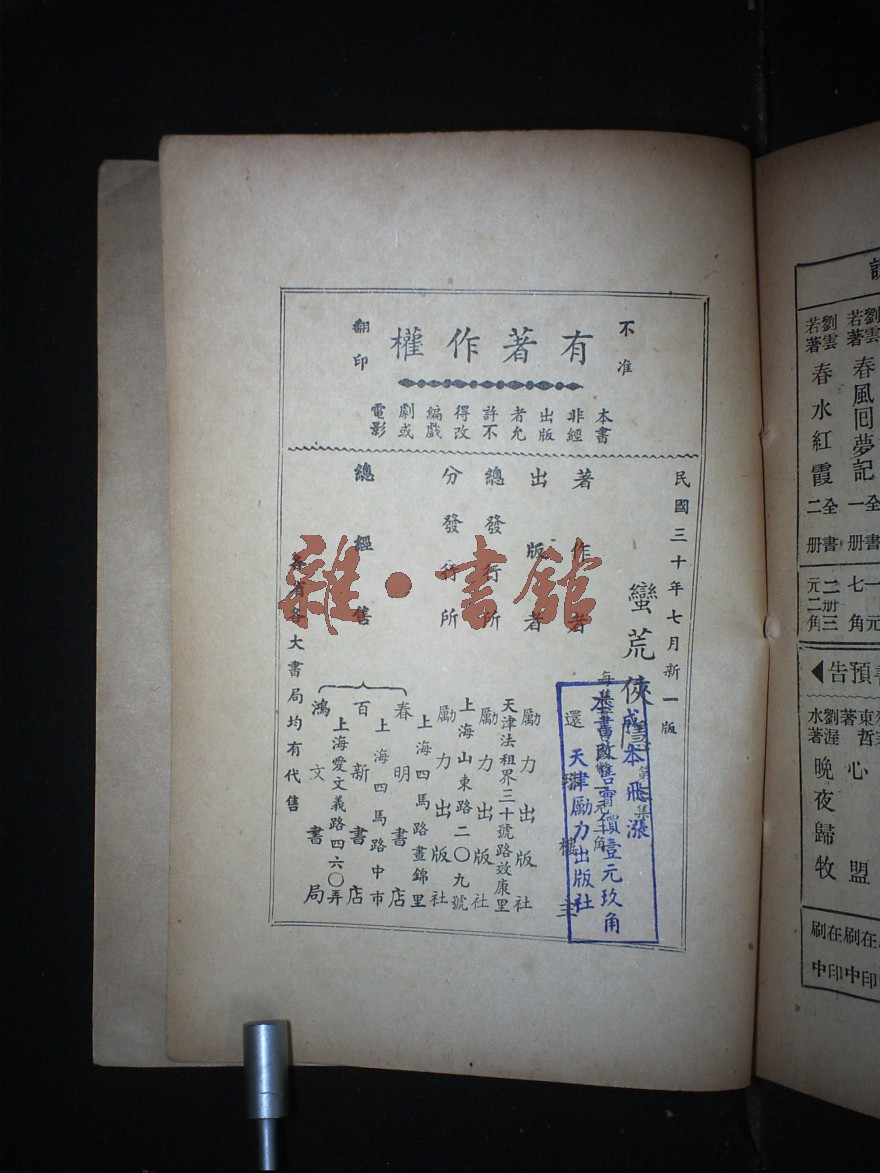 有著作權
不准
翻印
本書
非經
出版
者允
許不
得改
編戲
劇或
電影
民國三十年七月新一版
蠻荒俠隱
著作者
還珠樓主
出版者
勵力出版社
天津法租界三十號路效康里
總發行所
勵力出版社
上海山東路二〇九號
分發行所
勵力出版社
上海四馬路畫錦里
總經售
春明書店
上海四馬路中市
百新書店
上海愛文義路四六〇弄
鴻文書局
各省各大書局均有代售
成本飛漲
本書改售實價壹元玖角
天津勵力出版社
雜·書館
劉雲若著
春風囘夢記
全書一册
劉雲若著
春水紅霞
全書二册
預告
心盟
劉渥水著
晚夜歸牧
在印刷中
在印刷中